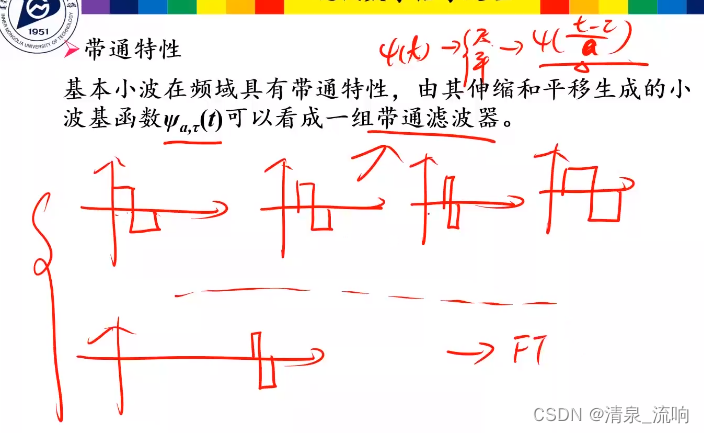 1951
带通特性
ψ(t) → → ψ(t-τ/a)
基本小波在频域具有带通特性，由其伸缩和平移生成的小
波基函数ψa,τ(t)可以看成一组带通滤波器。
→ FT
CSDN @清泉_流响